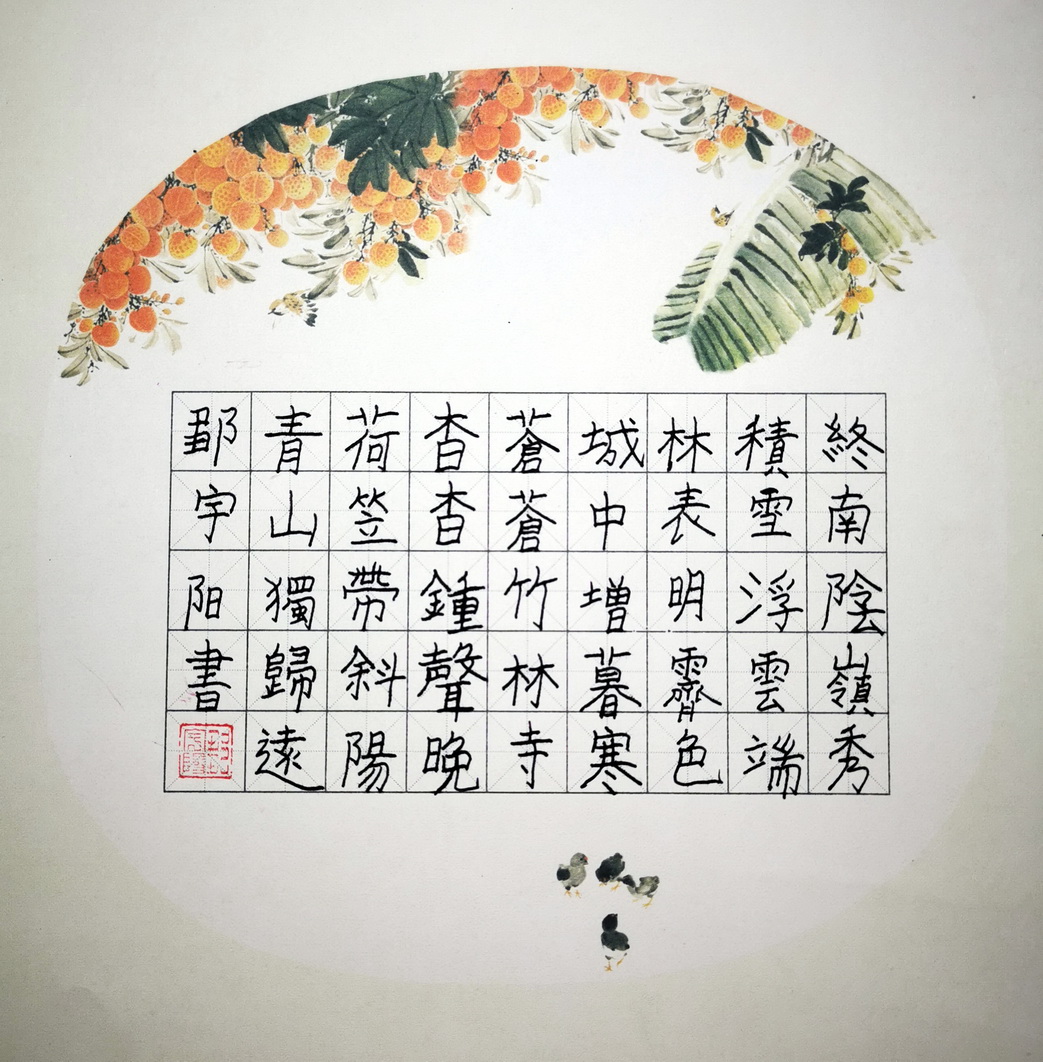 終南陰嶺秀
積雪浮雲端
林表明霽色
城中增暮寒
蒼蒼竹林寺
杳杳鍾聲晚
荷笠帶斜陽
青山獨歸遠
宇阳書